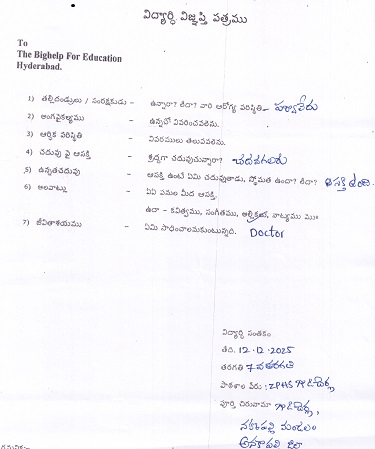 విద్యార్థి విజ్ఞప్తి పత్రము
To
The Bighelp For Education
Hyderabad.
1) తల్లిదండ్రులు / సంరక్షకుడు - ఉన్నారా? లేదా? వారి ఆరోగ్య పరిస్థితి - పర్వాలేదు
2) అంగవైకల్యము - ఉన్నచో వివరించవలెను.
3) ఆర్థిక పరిస్థితి - వివరములు తెలుపవలెను.
4) చదువు పై ఆసక్తి - శ్రద్ధగా చదువుచున్నారా? చదవగలరు
5) ఉన్నతచదువు - ఆసక్తి ఉంటే ఏమి చదువుతాడు. స్తోమత ఉందా? లేదా? ఆసక్తి ఉంది.
6) అలవాట్లు - ఏఏ పనుల మీద ఆసక్తి.
ఉదా - కవిత్వము, సంగీతము, నాట్యము
7) జీవితాశయము - ఏమి సాధించాలనుకుంటున్నది. Doctor
విద్యార్థి సంతకం
తేది. 12.12.2025
తరగతి 7వ తరగతి
పాఠశాల పేరు: ZPHS
పూర్తి చిరునామా
నక్కపల్లి మండలం
అనకాపల్లి జిల్లా